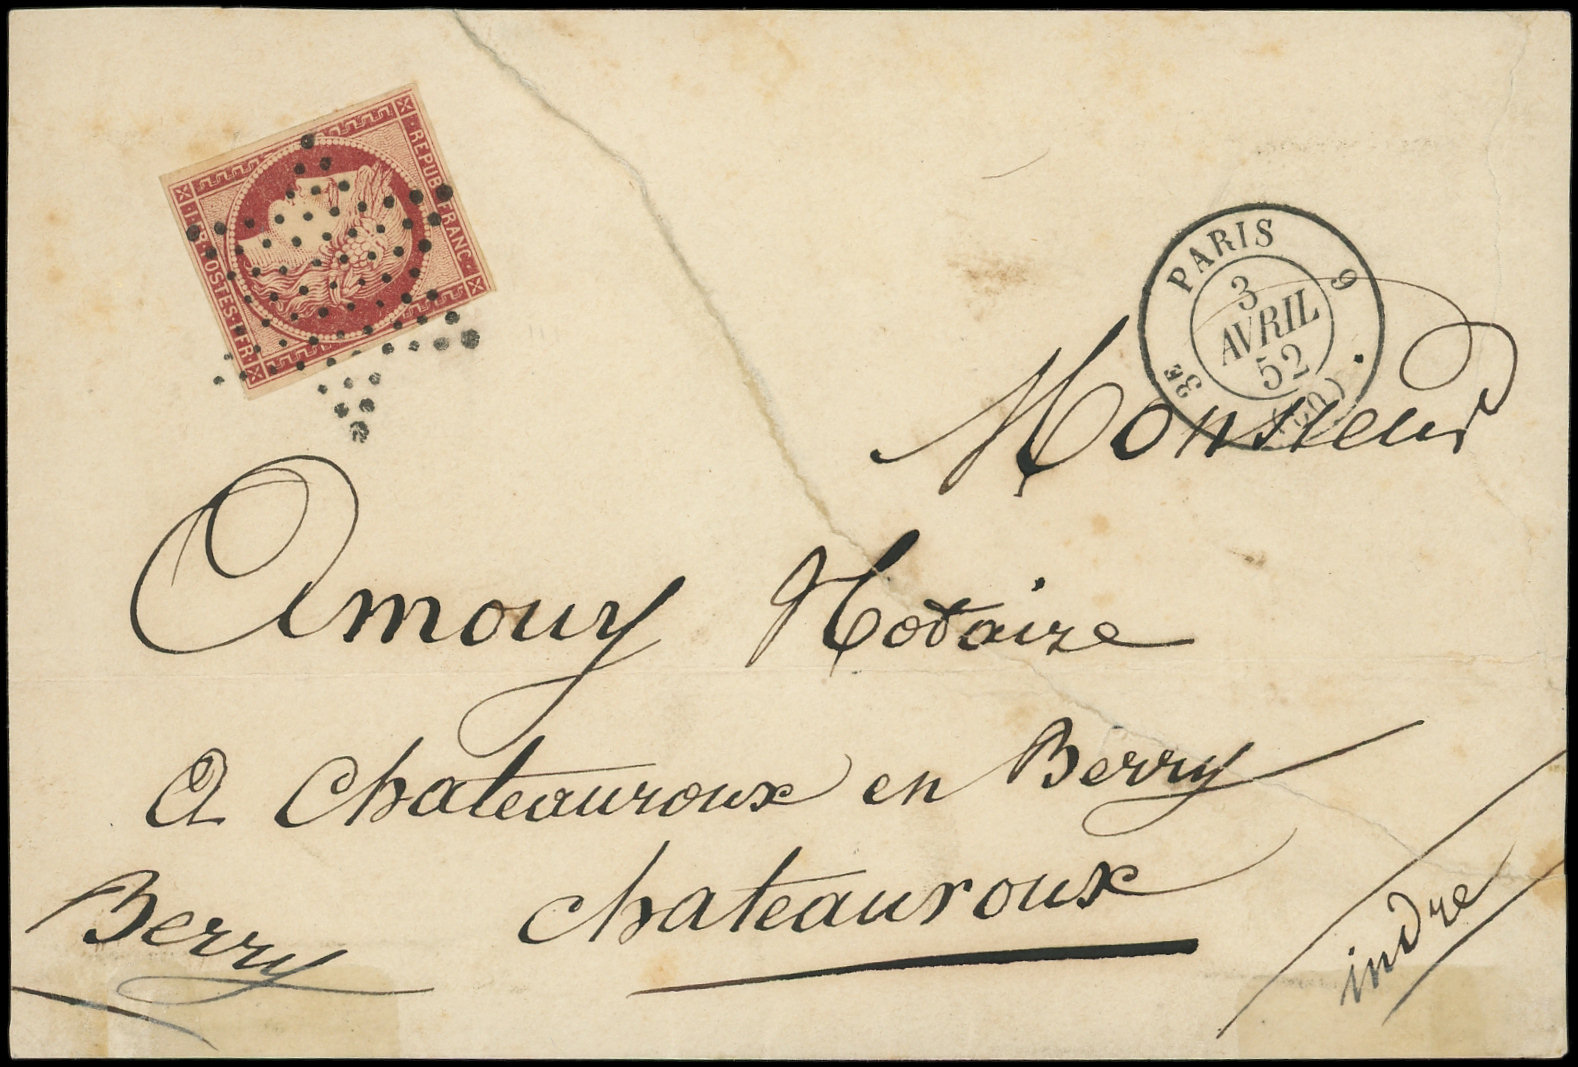 REPUB. FRANC.
· 1 · FR · POSTES · 1 · FR ·
PARIS
3E
3
AVRIL
52
(60)
Monsieur
Amouy Notaire
A Chateauroux en Berry
Chateauroux
Berry
indre